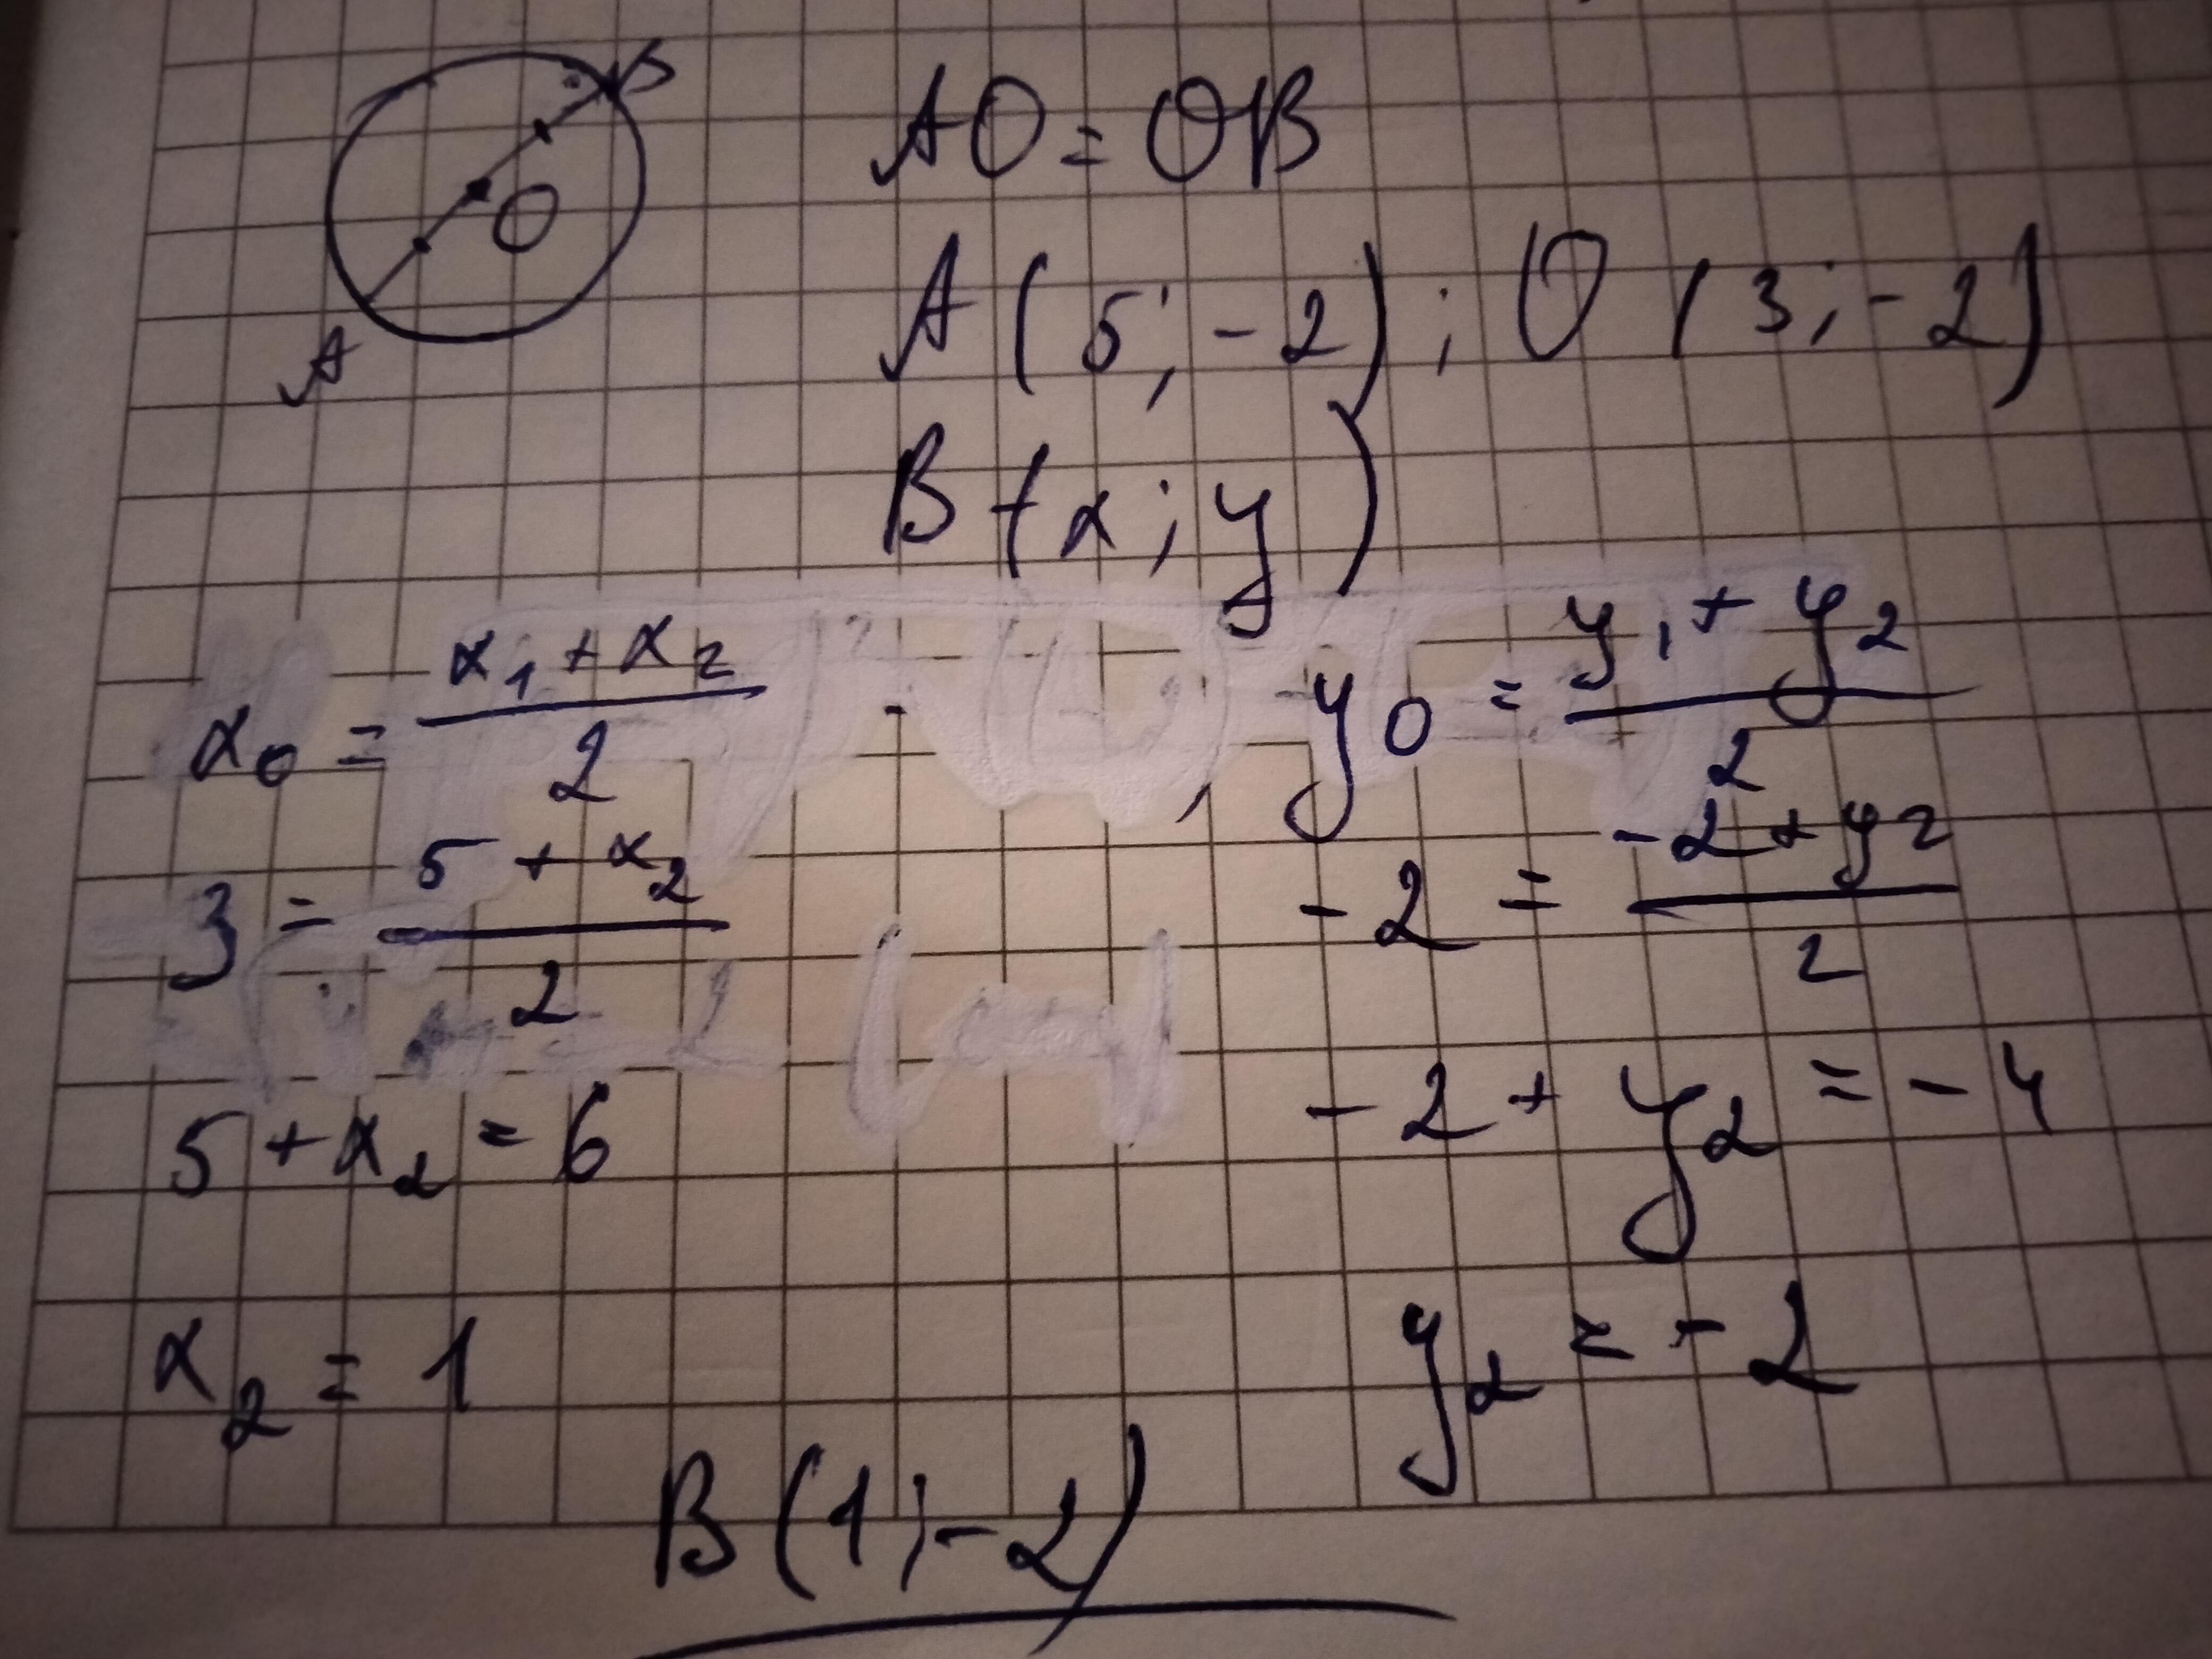 B
O
A
AO = OB
A (5; -2); O (3; -2)
B (x; y)
x₀ = (x₁ + x₂)/2, y₀ = (y₁ + y₂)/2
3 = (5 + x₂)/2
-2 = (-2 + y₂)/2
5 + x₂ = 6
-2 + y₂ = -4
x₂ = 1
y₂ = -2
B (1; -2)